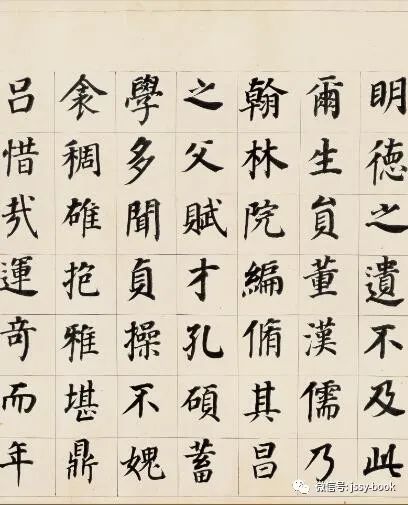 明德之遺不及此
爾生貟董漢儒乃
翰林院編脩其昌
之父賦才孔碩蓄
學多聞貞操不媿
衾稠雄抱雅堪鼎
呂惜哉運竒而年
微信号: jssy-book